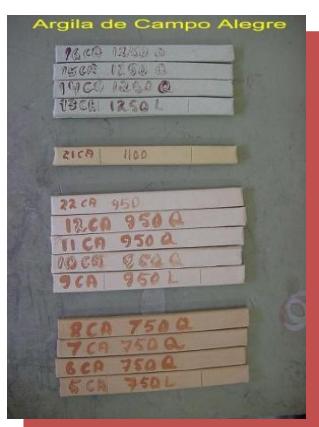 Argila de Campo Alegre
16 CA 1250 Q
15 CA 1250 Q
14 CA 1250 Q
13 CA 1250 L
21 CA 1100
22 CA 950
12 CA 950 Q
11 CA 950 Q
10 CA 950 Q
9 CA 950 L
8 CA 750 Q
7 CA 750 Q
6 CA 750 Q
5 CA 750 L